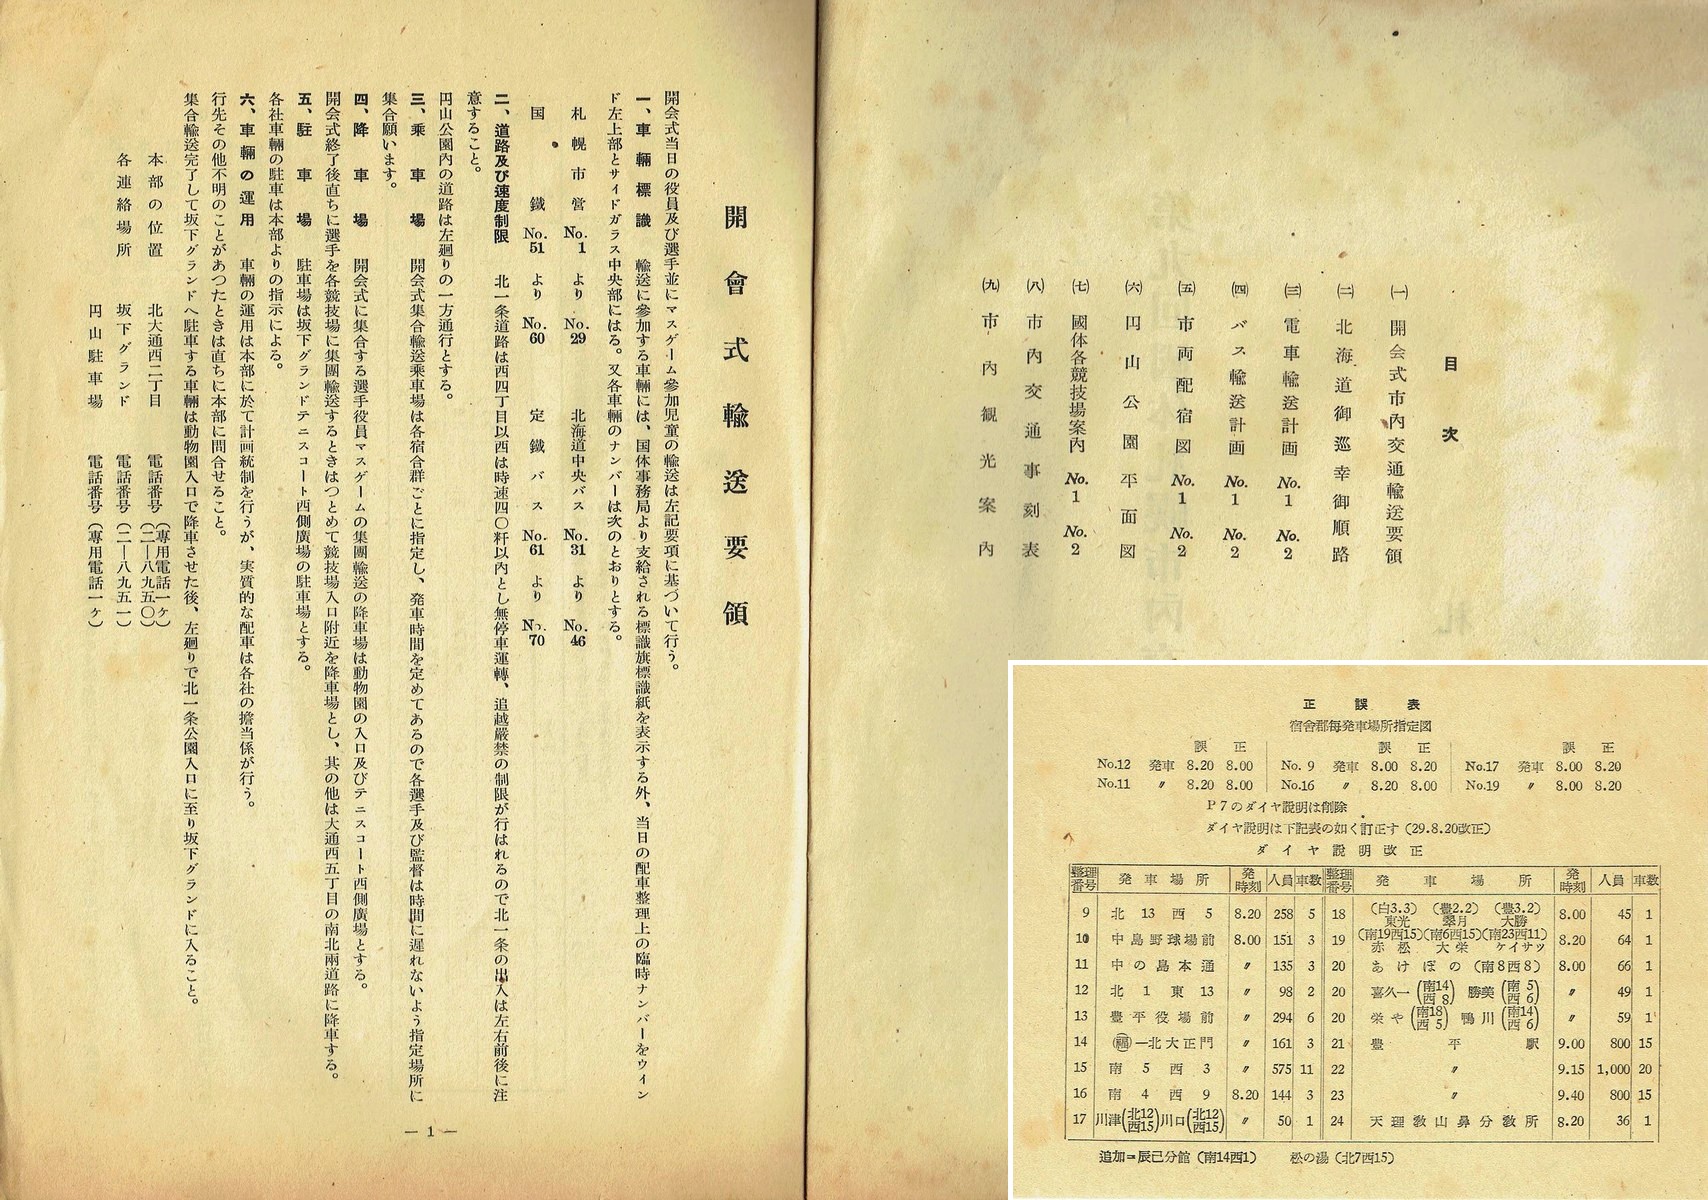 目次
㈠ 開会式市內交通輸送要領
㈡ 北海道御巡幸御順路
㈢ 電車輸送計画 No.1 No.2
㈣ バス輸送計画 No.1 No.2
㈤ 市両配宿図 No.1 No.2
㈥ 円山公園平面図
㈦ 國体各競技場案內 No.1 No.2
㈧ 市內交通事刻表
㈨ 市內観光案內
開會式輸送要領
開会式当日の役員及び選手並にマスゲーム參加児童の輸送は左記要項に基づいて行う。
一、車輛標識 輸送に參加する車輛には、国体事務局より支給される標識旗標識紙を表示する外、当日の配車整理上の臨時ナンバーをウイン
ド左上部とサイドガラス中央部にはる。又各車輛のナンバーは次のとおりとする。
札幌市営 No.1 より No.29 北海道中央バス No.31 より No.46
国鐵 No.51 より No.60 定鐵バス No.61 より No.70
二、道路及び速度制限 北一条道路は西四丁目以西は時速四〇粁以內とし無停車運轉、追越嚴禁の制限が行はれるので北一条の出入は左右前後に注
意すること。
円山公園內の道路は左廻りの一方通行とする。
三、乗車場 開会式集合輸送乗車場は各宿合群ごとに指定し、発車時間を定めてあるので各選手及び監督は時間に遅れないよう指定場所に
集合願います。
四、降車場 開会式に集合する選手役員マスゲームの集團輸送の降車場は動物園の入口及びテニスコート西側廣場とする。
開会式終了後直ちに選手を各競技場に集團輸送するときはつとめて競技場入口附近を降車場とし、其の他は大通西五丁目の南北兩道路に降車する。
五、駐車場 駐車場は坂下グランドテニスコート西側廣場の駐車場とする。
各社車輛の駐車は本部よりの指示による。
六、車輛の運用 車輛の運用は本部に於て計画統制を行うが、実質的な配車は各社の擔当係が行う。
行先その他不明のことがあつたときは直ちに本部に問合せること。
集合輸送完了して坂下グランドへ駐車する車輛は動物園入口で降車させた後、左廻りで北一条公園入口に至り坂下グランドに入ること。
本部の位置 北大通西二丁目 電話番号 (専用電話一ケ) (二―八九五〇)
各連絡場所 坂下グランド 電話番号 (二―八九五一)
円山駐車場 電話番号 (專用電話一ケ)
― 1 ―
正誤表
宿舍郡每発車場所指定図
誤 正 誤 正 誤 正
No.12 発車 8.20 8.00 No. 9 発車 8.00 8.20 No.17 発車 8.00 8.20
No.11 〃 8.20 8.00 No.16 〃 8.20 8.00 No.19 〃 8.00 8.20
P7のダイヤ説明は削除
ダイヤ説明は下記表の如く訂正す (29.8.20改正)
ダイヤ説明改正
整理番号 発車場所 発時刻 人員 車数 整理番号 発車場所 発時刻 人員 車数
9 北13西5 8.20 258 5 18 (白3.3)東光 (豊2.2)翠月 (豊3.2)大勝 8.00 45 1
10 中島野球場前 8.00 151 3 19 (南19西15)赤松 (南6西15)大栄 (南23西11)ケイサツ 8.20 64 1
11 中の島本通 〃 135 3 20 あけぼの (南8西8) 8.00 66 1
12 北1東13 〃 98 2 20 喜久一(南14西8) 勝美(南5西6) 〃 49 1
13 豊平役場前 〃 294 6 20 栄や(南18西5) 鴨川(南14西6) 〃 59 1
14 ㊪一北大正門 〃 161 3 21 豊平駅 9.00 800 15
15 南5西3 〃 575 11 22 〃 9.15 1,000 20
16 南4西9 8.20 144 3 23 〃 9.40 800 15
17 川津(北12西15)川口(北12西15) 〃 50 1 24 天理敎山鼻分敎所 8.20 36 1
追加＝辰己分館 (南14西1) 松の湯 (北7西15)